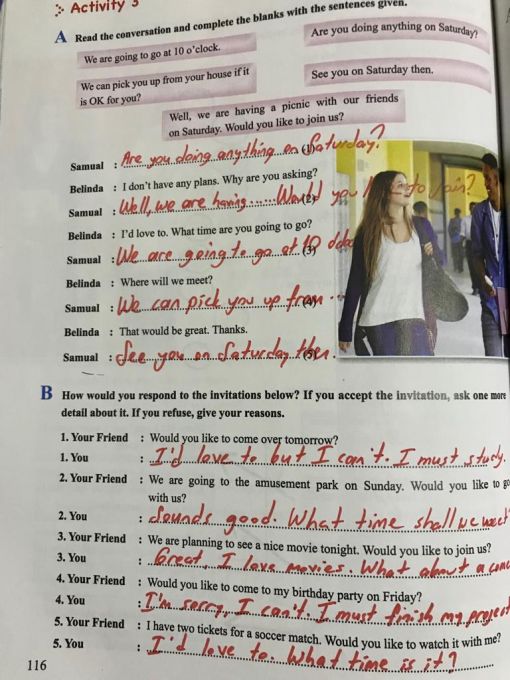 Activity 3
A Read the conversation and complete the blanks with the sentences given.
We are going to go at 10 o'clock.
Are you doing anything on Saturday?
We can pick you up from your house if it
is OK for you?
See you on Saturday then.
Well, we are having a picnic with our friends
on Saturday. Would you like to join us?
Samual : Are you doing anything on Saturday? (1)
Belinda : I don't have any plans. Why are you asking?
Samual : Well, we are having ...... Would you like to join? (2)
Belinda : I'd love to. What time are you going to go?
Samual : We are going to go at 10 (3)
Belinda : Where will we meet?
Samual : We can pick you up from ... (4)
Belinda : That would be great. Thanks.
Samual : See you on Saturday then. (5)
B How would you respond to the invitations below? If you accept the invitation, ask one more
detail about it. If you refuse, give your reasons.
1. Your Friend : Would you like to come over tomorrow?
1. You : I'd love to but I can't. I must study.
2. Your Friend : We are going to the amusement park on Sunday. Would you like to go
with us?
2. You : Sounds good. What time shall we meet
3. Your Friend : We are planning to see a nice movie tonight. Would you like to join us?
3. You : Great, I love movies. What about a
4. Your Friend : Would you like to come to my birthday party on Friday?
4. You : I'm sorry, I can't. I must finish my project
5. Your Friend : I have two tickets for a soccer match. Would you like to watch it with me?
5. You : I'd love to. What time is it?
116